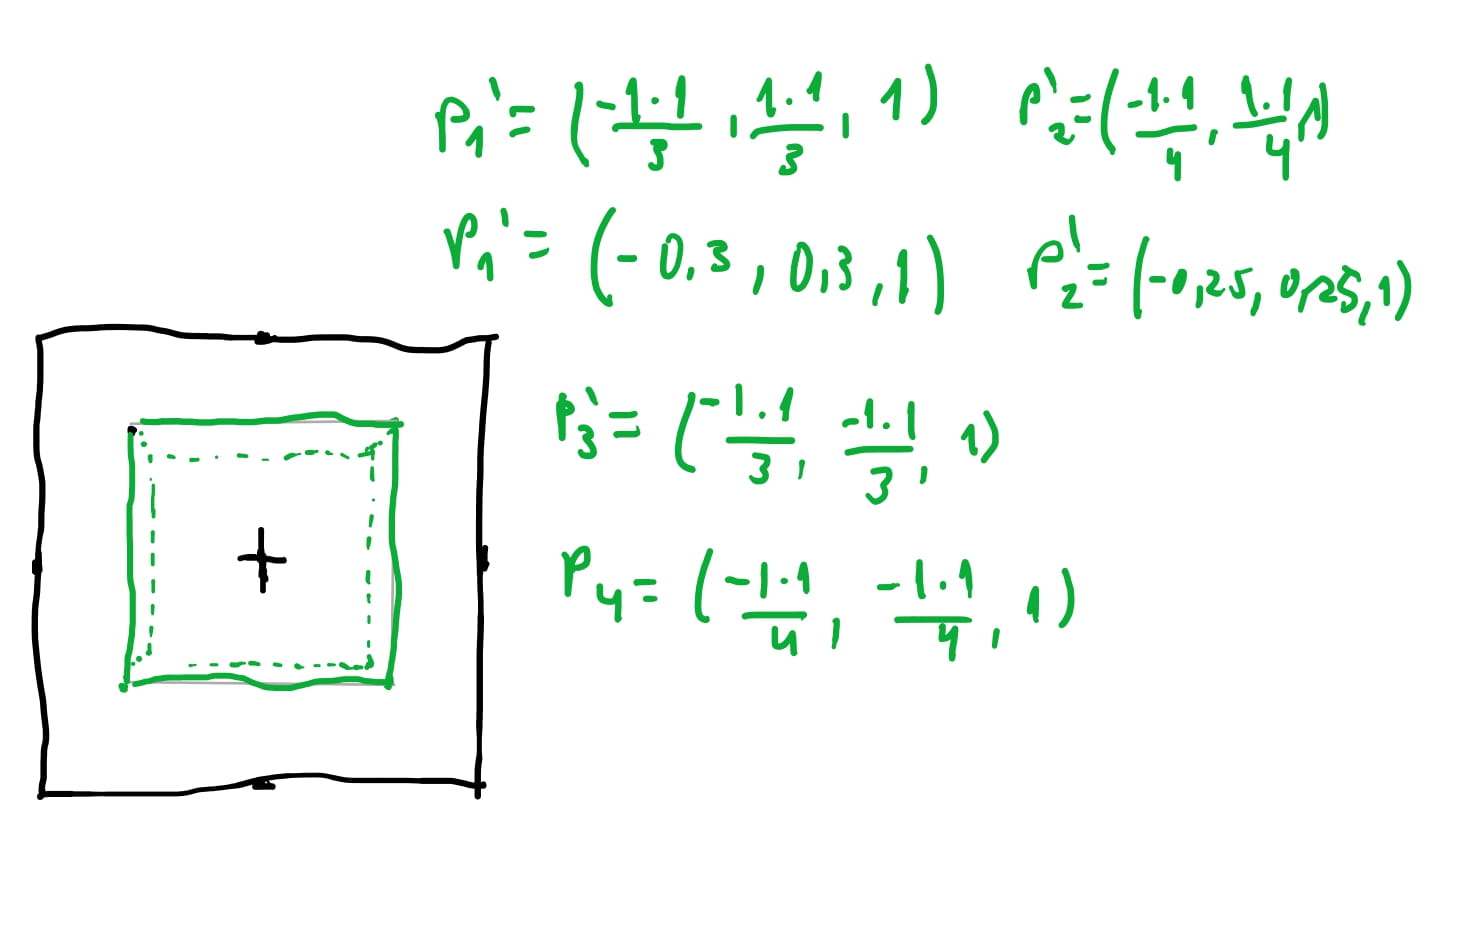 P₁' = (-1·1/3, 1·1/3, 1) P₂' = (-1·1/4, 1·1/4, 1)
P₁' = (-0,3, 0,3, 1) P₂' = (-0,25, 0,25, 1)
P₃' = (-1·1/3, -1·1/3, 1)
P₄ = (-1·1/4, -1·1/4, 1)